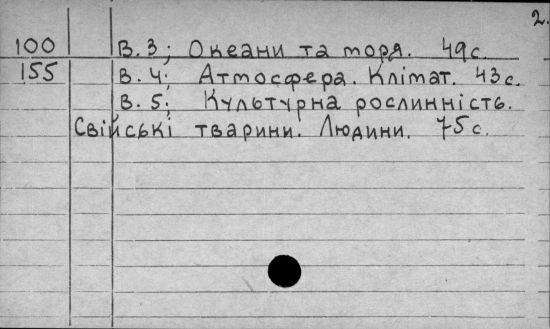 2.
100 В. 3; Океани та моря. 49с.
155 В. 4; Атмосфера. Клімат. 43с.
В. 5; Культурна рослинність.
Свійські тварини. Людини. 75с.